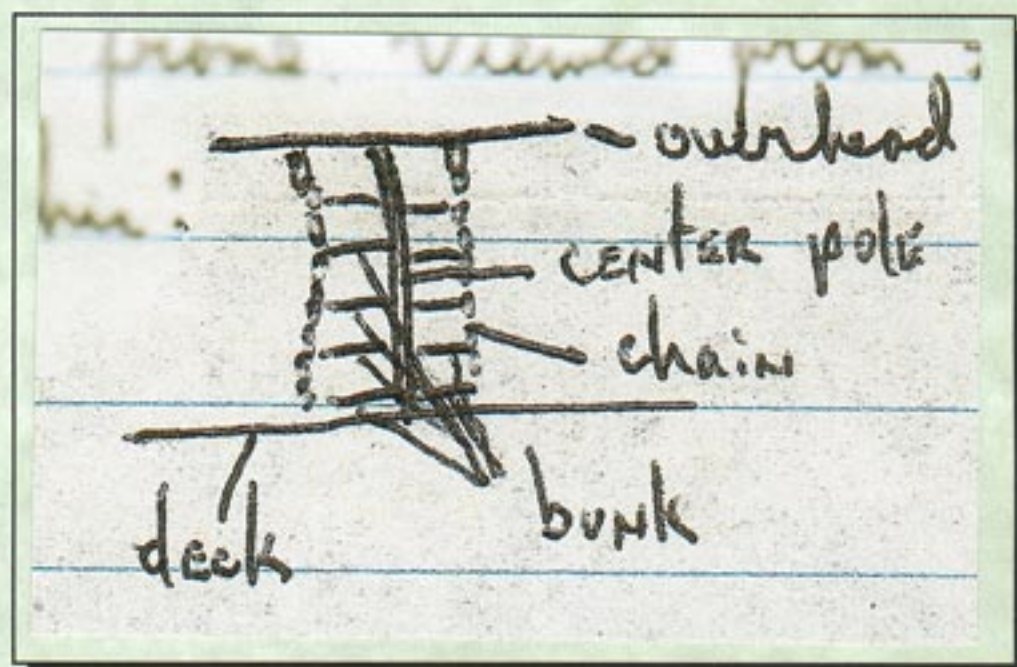 frome viewed from
overhead
center pole
chain
bunk
deck